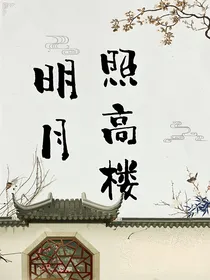 明月
照高楼